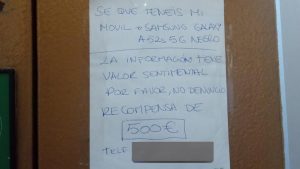 SE QUE TENEIS MI
MOVIL → SAMSUNG GALAXY
A52s 5G NEGRO
LA INFORMACIÓN TIENE
VALOR SENTIMENTAL
POR FAVOR, NO DENUNCIO
RECOMPENSA DE
500€
TELF